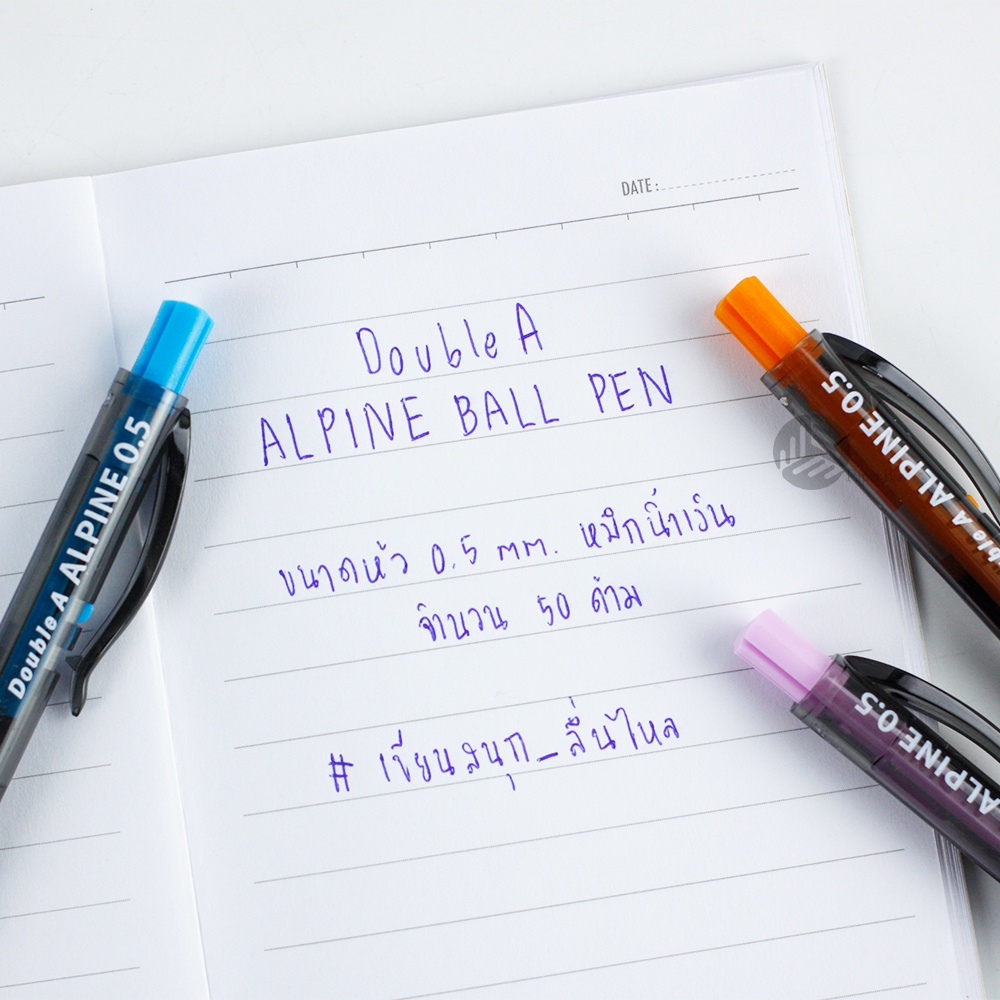 DATE :
Double A
ALPINE BALL PEN
ขนาดหัว 0.5 mm. หมึกน้ำเงิน
จำนวน 50 ด้าม
# เขียนสนุก_ลื่นไหล
Double A ALPINE 0.5
Double A ALPINE 0.5
ALPINE 0.5